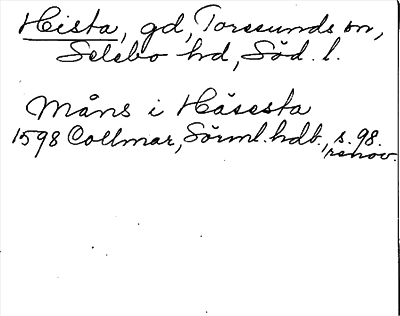 Hista, gd, Torssunds sn,
Selebo hd, Söd. l.
Måns i Häsesta
1598 Collmar, Sörml. hdl., s. 98.
renov.